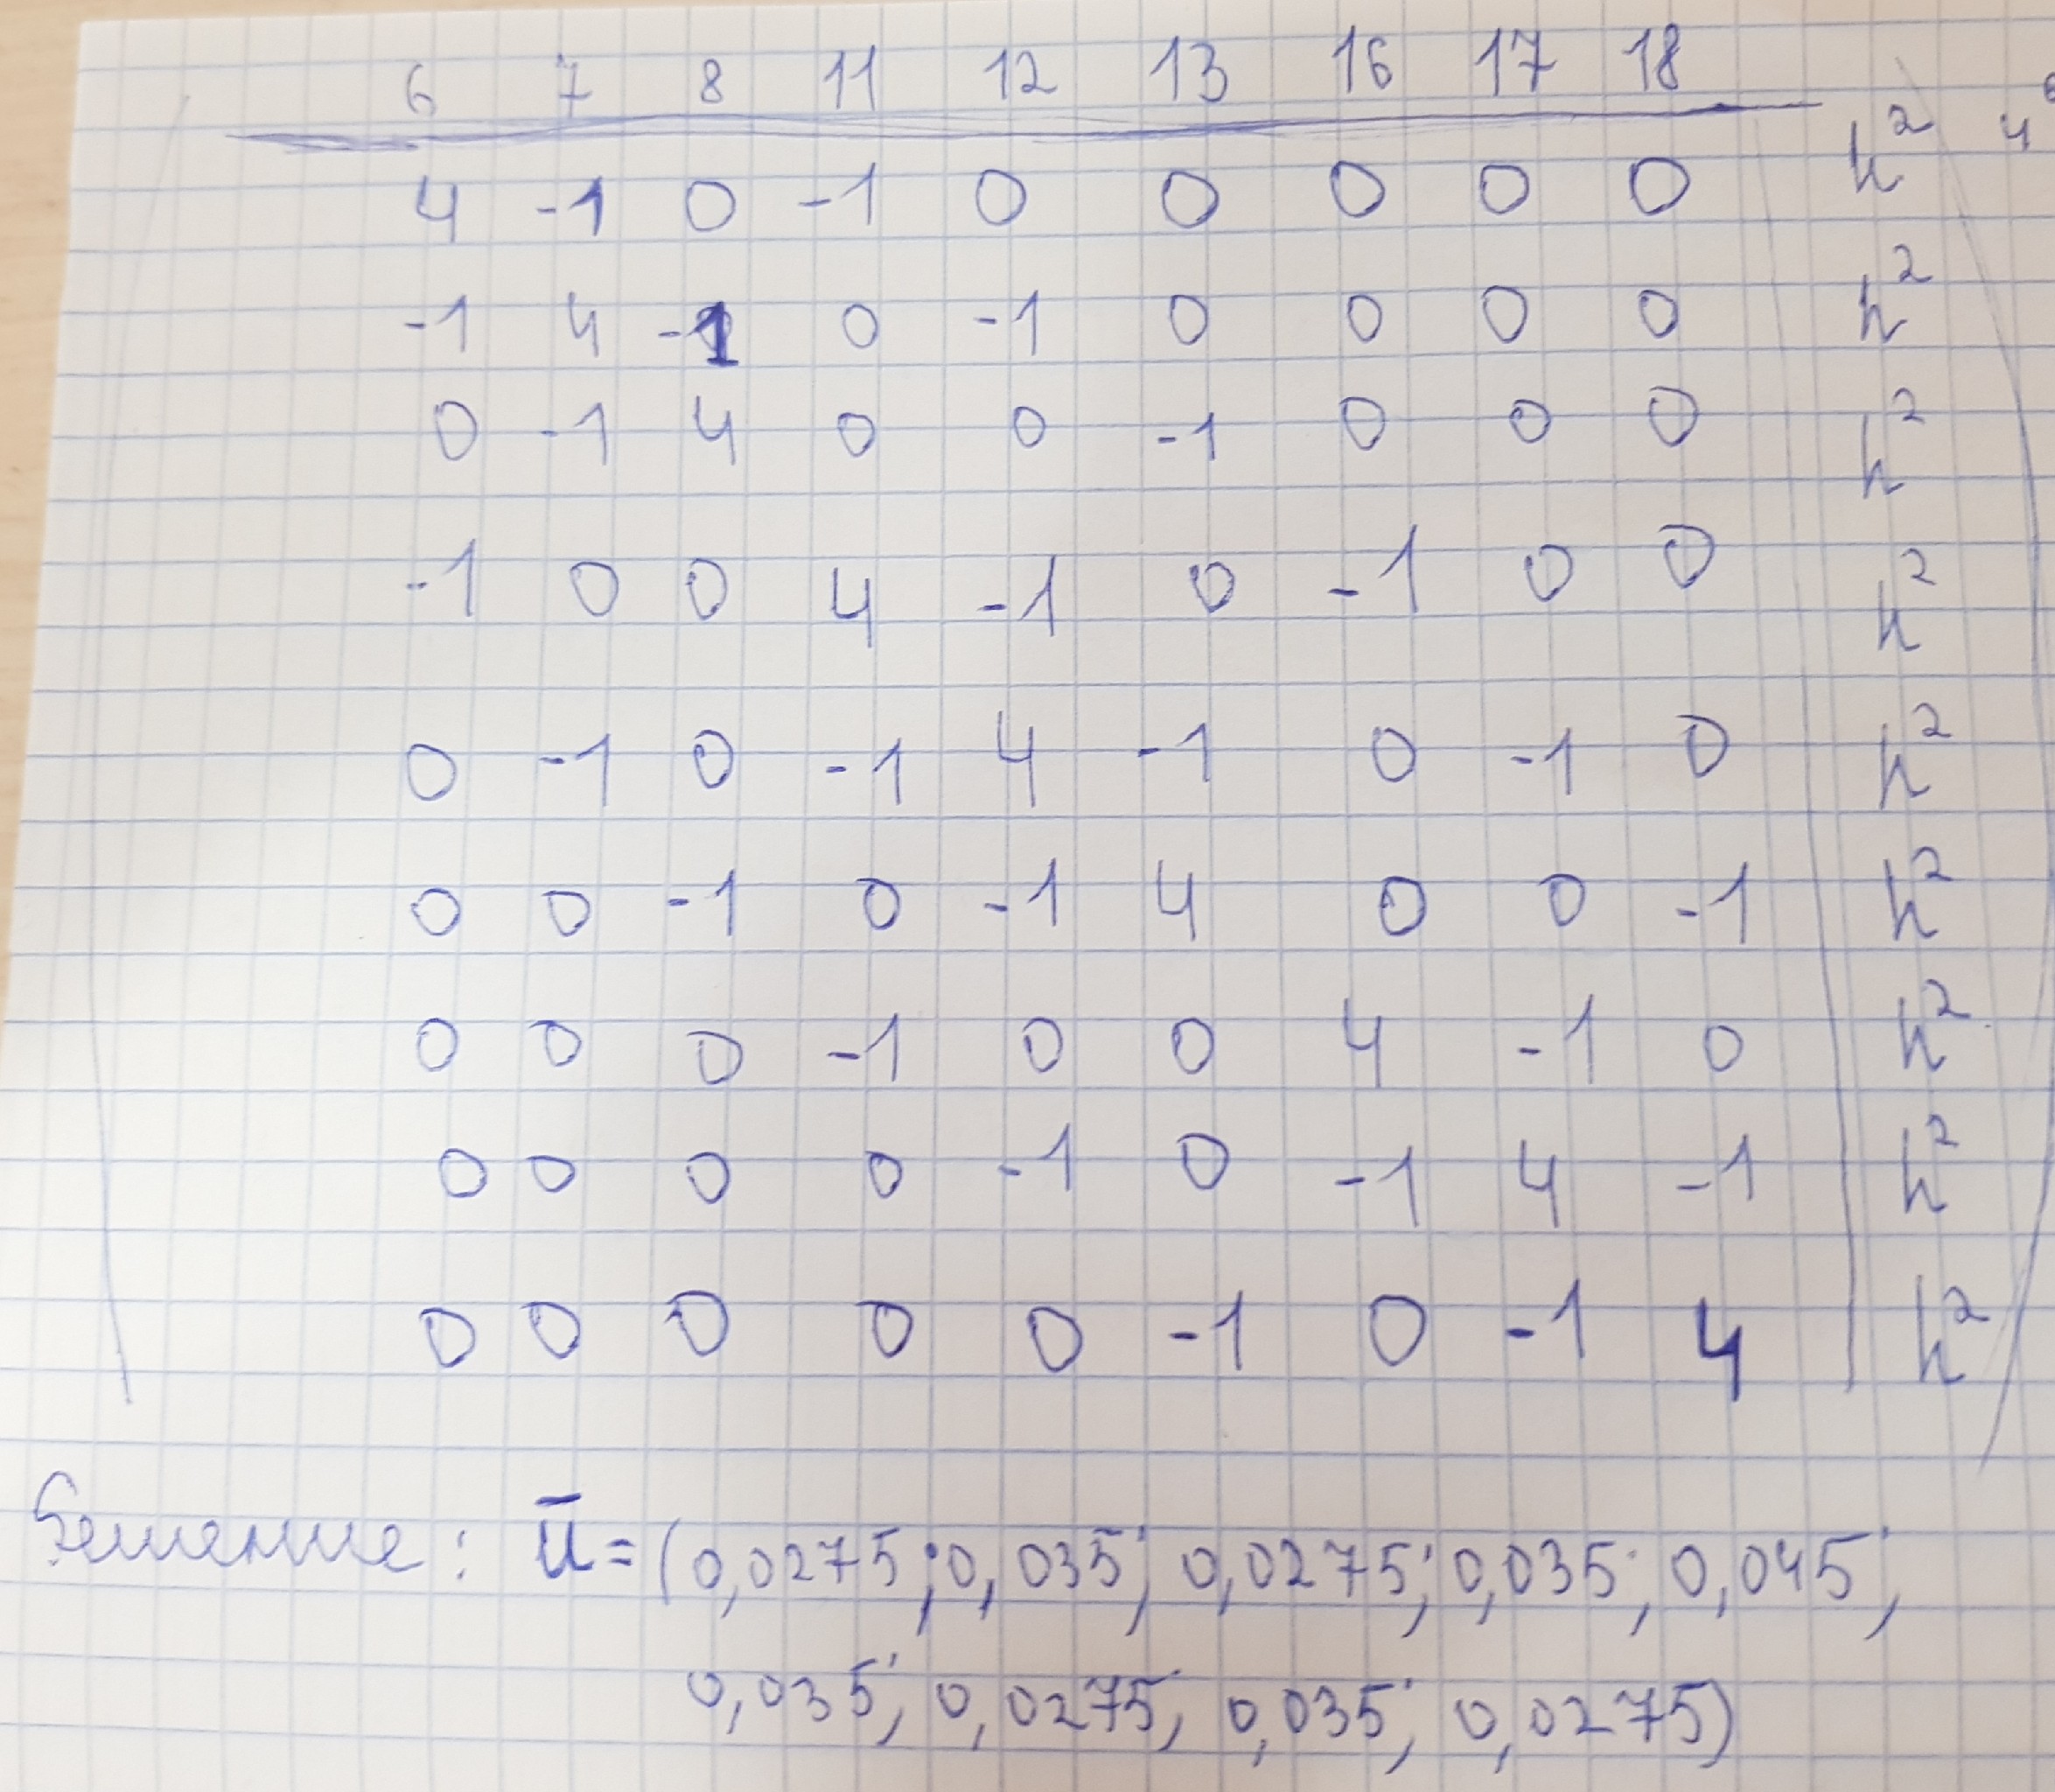 6 7 8 11 12 13 16 17 18
4 -1 0 -1 0 0 0 0 0 h² 4
-1 4 -1 0 -1 0 0 0 0 h²
0 -1 4 0 0 -1 0 0 0 h²
-1 0 0 4 -1 0 -1 0 0 h²
0 -1 0 -1 4 -1 0 -1 0 h²
0 0 -1 0 -1 4 0 0 -1 h²
0 0 0 -1 0 0 4 -1 0 h²
0 0 0 0 -1 0 -1 4 -1 h²
0 0 0 0 0 -1 0 -1 4 h²
Решение: ū = (0,0275; 0,035; 0,0275; 0,035; 0,045;
0,035; 0,0275; 0,035; 0,0275)